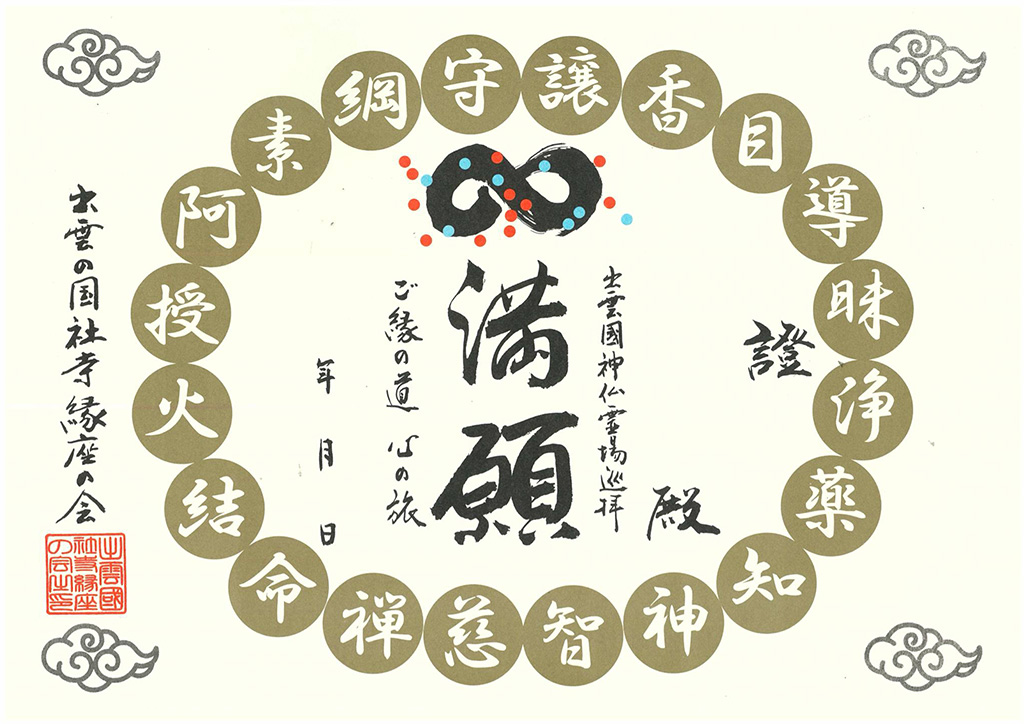 守
譲
香
目
導
昧
浄
薬
知
神
智
慈
禅
命
結
火
授
阿
素
綱
證
殿
出雲國神仏霊場巡拝
満願
ご縁の道 心の旅
年 月 日
出雲の国社寺縁座の会
出雲國
社寺縁座
の会之印